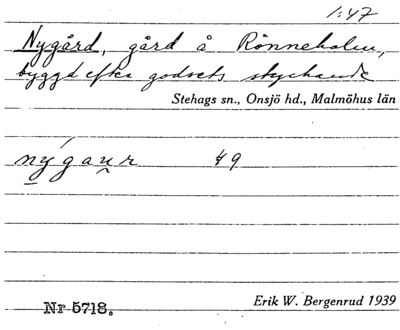 1:47
Nygård, gård å Rönneholm,
byggd efter godsets styckande
Stehags sn., Onsjö hd., Malmöhus län
nýgau̯r 49
Nr 5718.
Erik W. Bergenrud 1939